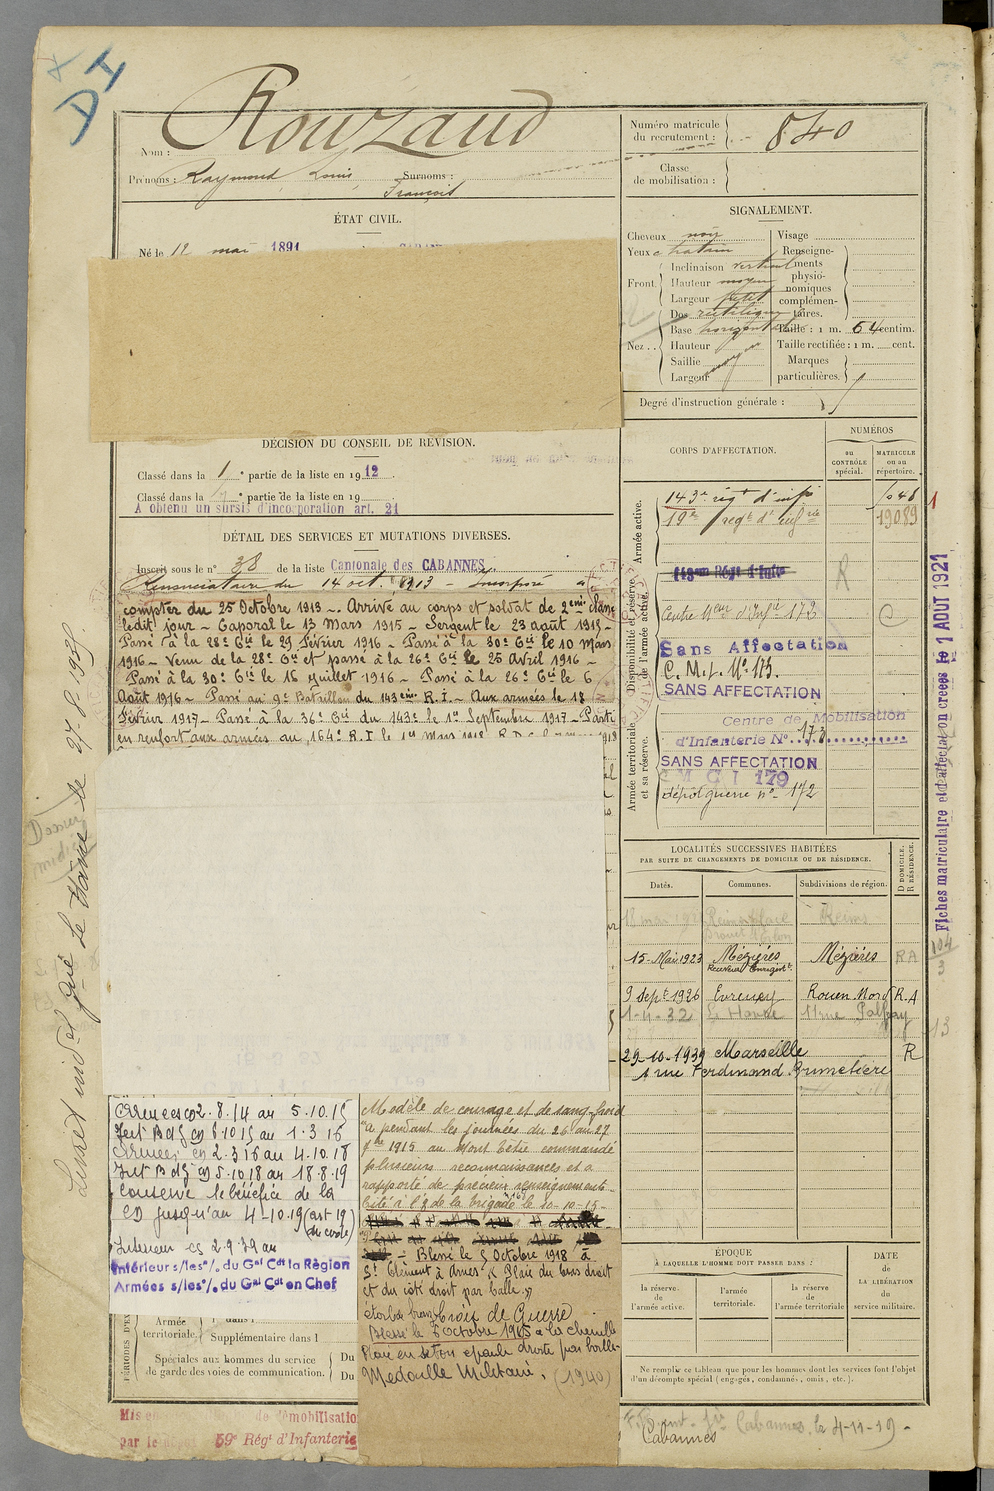 DI
Nom : Rouzaud
Prénoms : Raymond Louis Surnoms :
François
ÉTAT CIVIL.
Né le 12 mai 1891
DÉCISION DU CONSEIL DE RÉVISION.
Classé dans la 1e partie de la liste en 1912.
Classé dans la partie de la liste en 19
A obtenu un sursis d'incorporation art. 21
DÉTAIL DES SERVICES ET MUTATIONS DIVERSES.
Inscrit sous le n° 38 de la liste Cantonale des CABANNES
du 14 oct. 1913 - Incorporé à
compter du 25 Octobre 1913 -. Arrivé au corps et soldat de 2eme classe
ledit jour - Caporal le 13 Mars 1915 - Sergent le 23 août 1915 -
Passé à la 28e Cie le 29 Février 1916 - Passé à la 30e Cie le 10 Mars
1916 - Venu de la 28e Cie et passé à la 26e Cie le 25 Avril 1916 -
Passé à la 30e Cie le 16 Juillet 1916 - Passé à la 26e Cie le 6
Août 1916 - Passé au 9e Bataillon du 143eme R.I. - Aux armées le 18
Février 1917 - Passé à la 36e Cie du 143e le 1er Septembre 1917 - Parti
en renfort aux armées au 164e R.I le 1er Mars 1918
Armées 2.8.14 au 5.10.15
Int 6.10.15 au 1.3.16
Armées 2.3.16 au 4.10.18
Int 5.10.18 au 18.8.19
Conserve le bénéfice de la
CD jusqu'au 4-10.19 (art 19)
Intérieur 2.9.39 au
Intérieur s/les°/. du Gal Cdt la Région
Armées s/les°/. du Gal Cdt en Chef
Armée
territoriale, dans l
Supplémentaire dans l
Spéciales aux hommes du service
de garde des voies de communication. Du
Du
Mis en de démobilisation
par le dépôt 59e Régt d'Infanterie
Modèle de courage et de sang-froid
a pendant les journées du 26 au 27
7bre 1915 au Mont Têtu commandé
plusieurs reconnaissances et a
rapporté de précieux renseignements
Cité à l'O de la brigade le 10-10-15-
- Blessé le 5 Octobre 1918 à
St Clément à Arnes « Plaie du bras droit
et du côté droit par balle »
Croix de Guerre
Blessé le 5 octobre 1915 à la
Plaie en séton épaule droite par balle
Médaille Militaire. (1940)
Numéro matricule
du recrutement : 840
Classe
de mobilisation :
SIGNALEMENT.
Cheveux noir
Yeux chatain
Front. Inclinaison vertical
Hauteur moyen
Largeur petit
Nez.. Dos rectiligne
Base horizontal
Hauteur
Saillie
Largeur
Visage
Renseignements
physionomiques
complémentaires.
Taille : 1 m. 64 centim.
Taille rectifiée : 1 m. cent.
Marques
particulières.
Degré d'instruction générale :
CORPS D'AFFECTATION.
NUMÉROS
au
CONTRÔLE
spécial.
MATRICULE
ou au
répertoire.
Armée active.
143e régt d'infie
19e régt d'infrie 19089
143eme Régt d'Infie
Disponibilité et réserve
de l'armée active.
Centre d'Infie 173
Sans Affectation
C.M.I. N° 173.
SANS AFFECTATION
Armée territoriale
et sa réserve.
Centre de Mobilisation
d'Infanterie N°. 173
SANS AFFECTATION
CMI 179
dépôt guerre n°- 172
LOCALITÉS SUCCESSIVES HABITÉES
PAR SUITE DE CHANGEMENTS DE DOMICILE OU DE RÉSIDENCE.
Dates. Communes. Subdivisions de région. D DOMICILE. R RÉSIDENCE.
18 mai Reims place Reims
Drouet d'Erlon
15-Mai 1923 Mézières Mézières RA
9 Sept 1926 Evreux Rouen Nord R.A
1-4-32 Le Havre 11 rue
29-10-1939 Marseille R
1 rue Ferdinand Brunetière
ÉPOQUE
À LAQUELLE L'HOMME DOIT PASSER DANS :
la réserve
de
l'armée active.
l'armée
territoriale.
la réserve
de
l'armée territoriale
DATE
de
LA LIBÉRATION
du
service militaire.
Ne remplir ce tableau que pour les hommes dont les services font l'objet
d'un décompte spécial (engagés, condamnés, omis, etc.).
Cabannes, le 4-11-19-
Cabannes
Fiches matriculaire et d'affectation créées le 1 AOUT 1921
27-8-1939